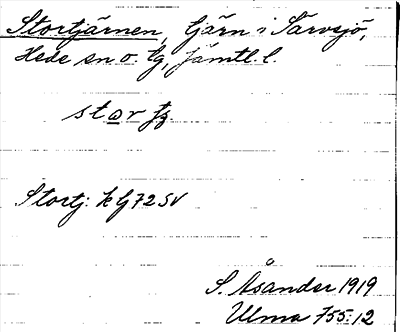 Stortjärnen, tjärn i Särvsjö,
Hede sn o. tg, Jämtl. l.
star
Stortj: k G 72 SV
S. Åsander 1919
Ulma 755:12